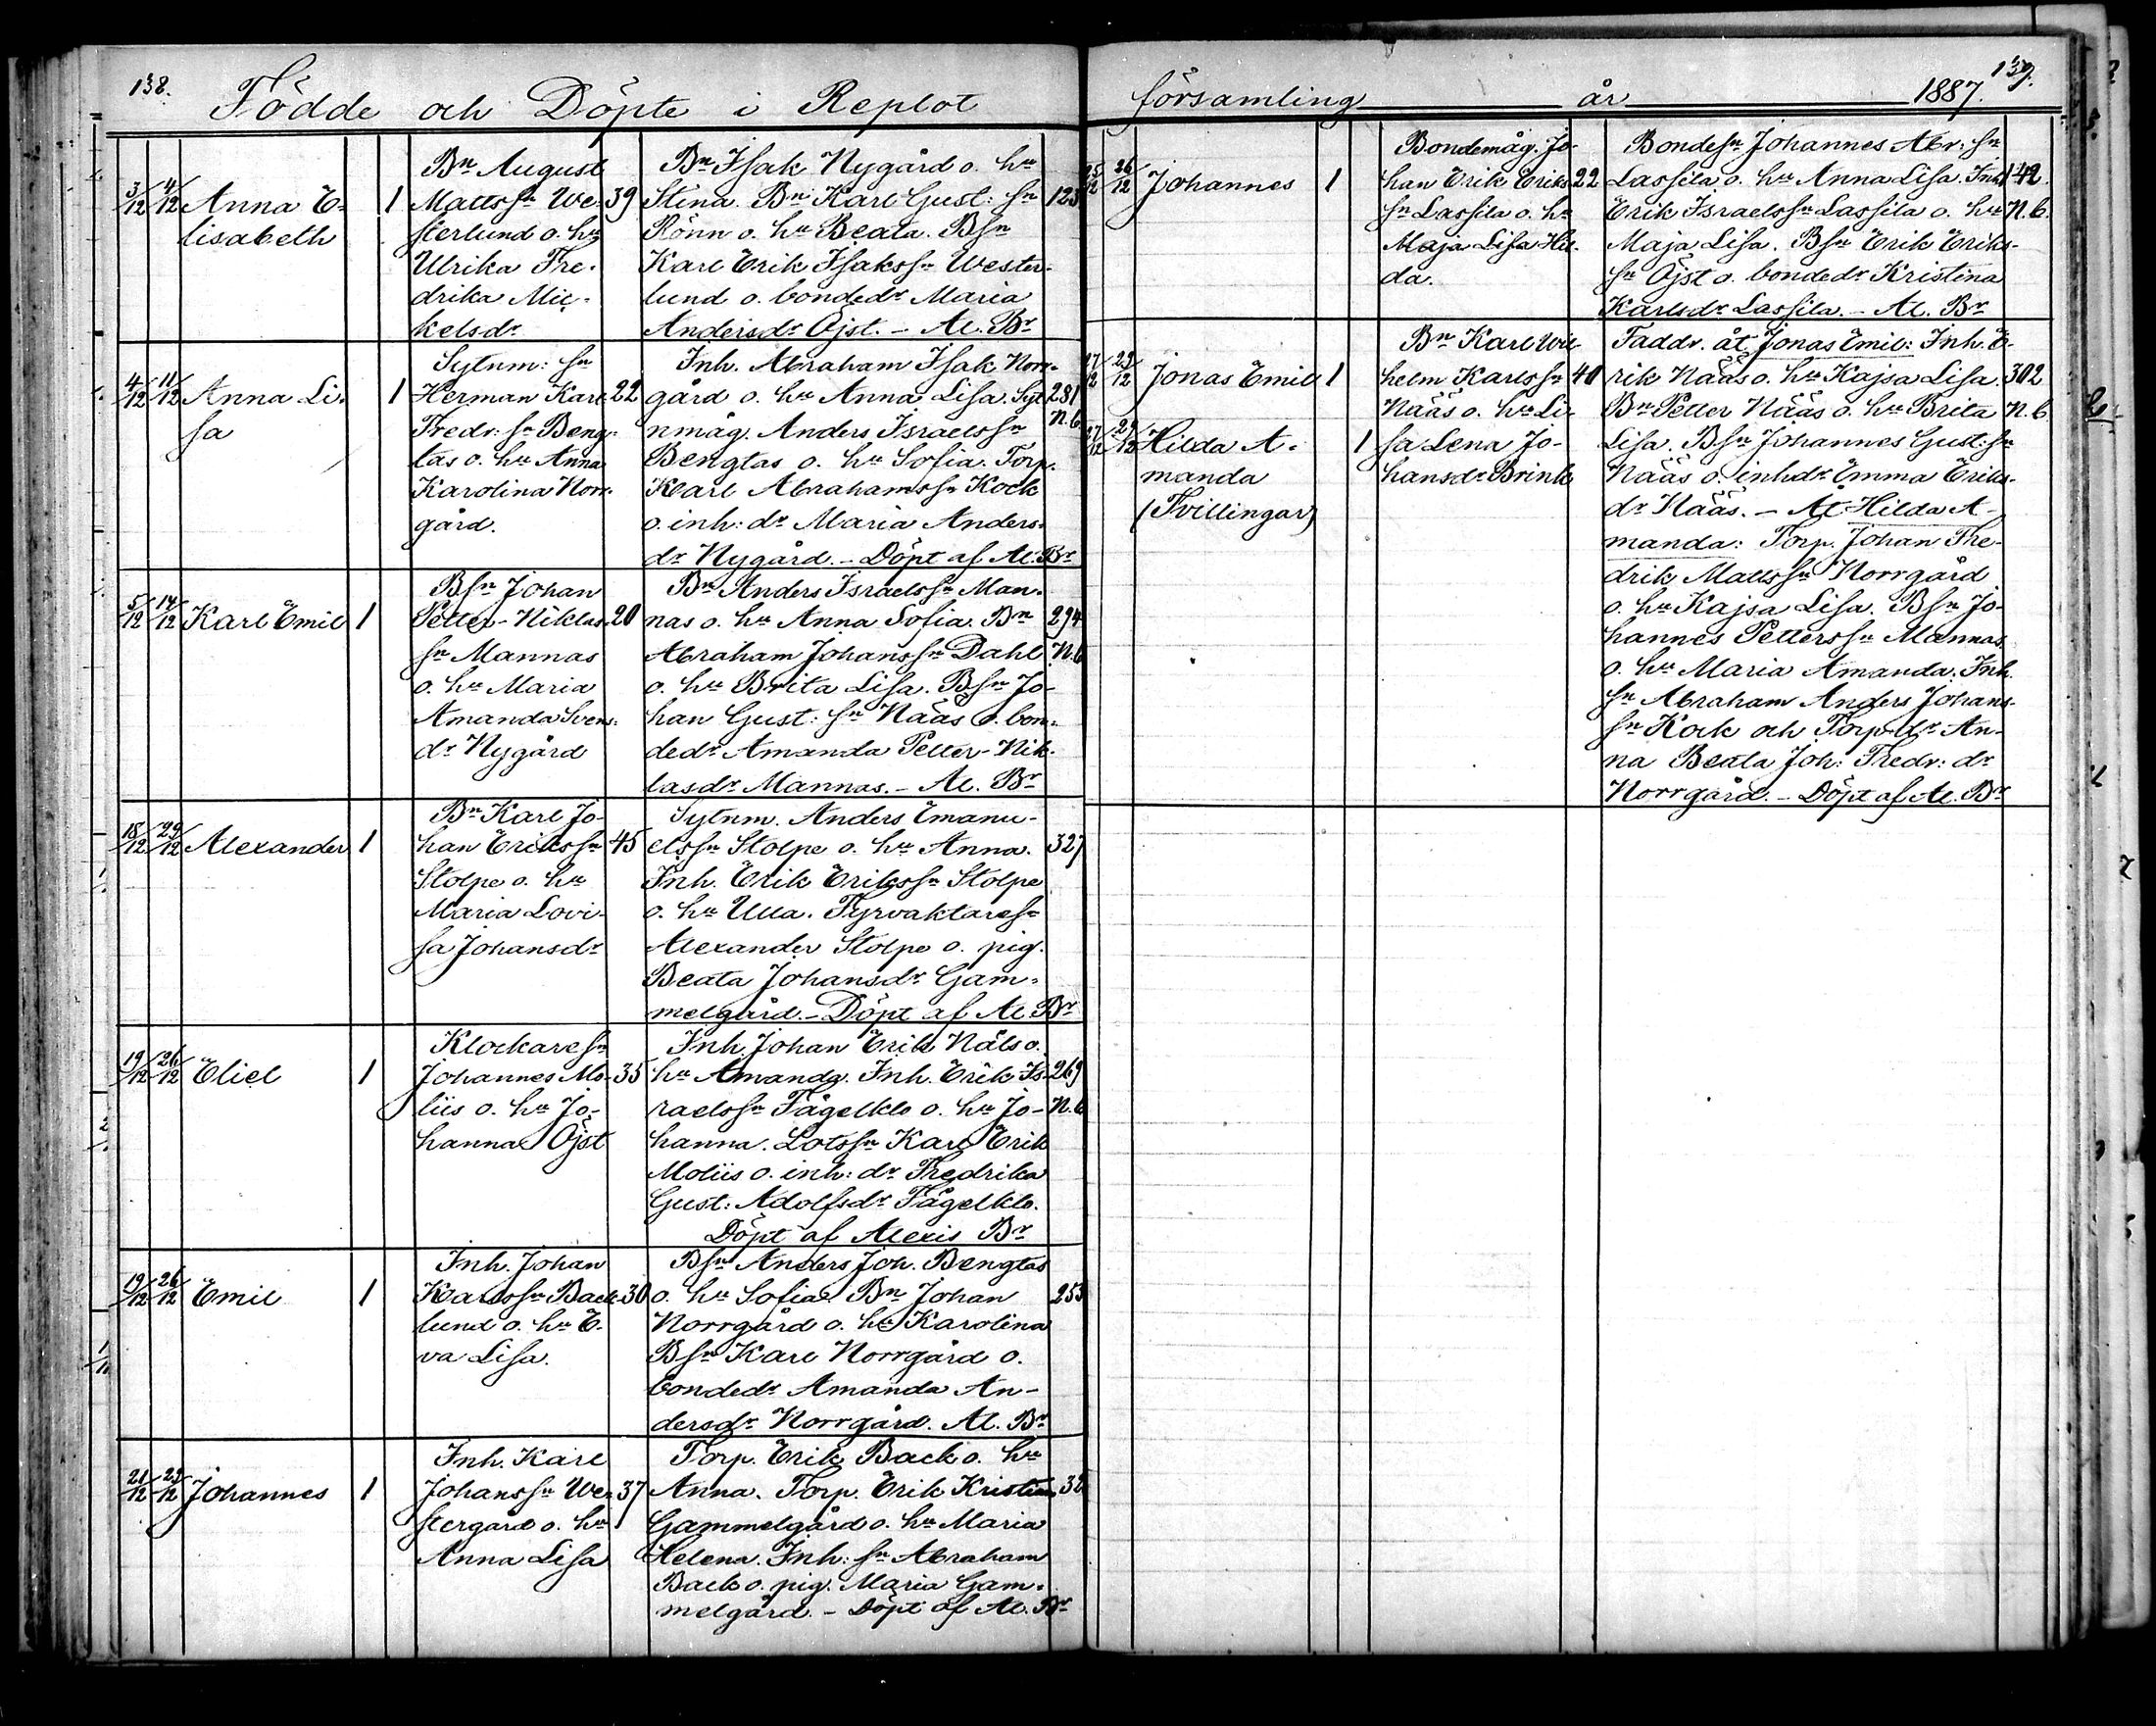 138.
Födde och Döpte i Replot
3/12 4/12 Anna E-
lisabeth
1
Bn August
Mattssn We-
sterlund o. hu
Ulrika Fre-
drika Mic-
kelsdr
39
Bn Isak Nygård o. hu
Stina. Bn Karl Gust: sn
Rönn o. hu Beata. Bsn
Karl Erik Isakssn Wester-
lund o. bondedr Maria
Andersdr Öjst. - Al. Br
123
4/12 11/12 Anna Li-
sa
1
Sytnm: sn
Herman Karl
Fredr: sn Beng-
tas o. hu Anna
Karolina Norr-
gård.
22
Inh. Abraham Isak Norr-
gård o. hu Anna Lisa. Syt-
nmåg. Anders Israelssn
Bengtas o. hu Sofia. Torp.
Karl Abrahamssn Kock
o. inh: dr Maria Anders-
dr Nygård. - Döpt af Al. Br
281
N.b.
5/12 14/12 Karl Emil
1
Bsn Johan
Petter-Niklas-
sn Mannas
o. hu Maria
Amanda Svens-
dr Nygård
20
Bn Anders Israelssn Man-
nas o. hu Anna Sofia. Bn
Abraham Johanssn Dahl
o. hu Brita Lisa. Bsn Jo-
han Gust: sn Nääs o. bon-
dedr Amanda Petter-Nik-
lasdr Mannas. - Al. Br
294
N.b
18/12 29/12 Alexander
1
Bn Karl Jo-
han Erikssn
Stolpe o. hu
Maria Lovi-
sa Johansdr
45
Sytnm. Anders Emanu-
elssn Stolpe o. hu Anna.
Inh. Erik Erikssn Stolpe
o. hu Ulla. Fyrvaktaresn
Alexander Stolpe o. pig.
Beata Johansdr Gam-
melgård. - Döpt af Al. Br
327
19/12 26/12 Eliel
1
Klockaresn
Johannes Mo-
liis o. hu Jo-
hanna Öjst
35
Inh. Johan Erik Nåls o.
hu Amanda. Inh. Erik Is-
raelssn Fågelklo o. hu Jo-
hanna. Lotssn Karl Erik
Moliis o. inh: dr Fredrika
Gust: Adolfsdr Fågelklo.
Döpt af Alexis Br
269
N.b
19/12 26/12 Emil
1
Inh. Johan
Karlssn Back-
lund o. hu E-
va Lisa.
30
Bsn Anders Joh. Bengtas
o. hu Sofia. Bn Johan
Norrgård o. hu Karolina
Bsn Karl Norrgård o.
bondedr Amanda An-
dersdr Norrgård. Al. Br
253
21/12 25/12 Johannes
1
Inh. Karl
Johanssn We-
stergård o. hu
Anna Lisa
37
Torp. Erik Back o. hu
Anna. Torp. Erik Kristian
Gammelgård o. hu Maria
Helena. Inh: sn Abraham
Back o. pig. Maria Gam-
melgård. - Döpt af Al. Br
32
139.
församling år 1887.
25/12 26/12 Johannes
1
Bondemåg. Jo-
han Erik Eriks-
sn Lassila o. hu
Maja Lisa Hil-
da.
22
Bondesn Johannes Abr: sn
Lassila o. hu Anna Lisa. Inh.
Erik Israelssn Lassila o. hu
Maja Lisa. Bsn Erik Eriks-
sn Öjst o. bondedr Kristina
Karlsdr Lassila. - Al. Br
142.
N.b.
27/12 29/12 Jonas Emil 1
27/12 29/12 Hilda A-
manda
(Tvillingar)
1
Bn Karl Wil-
helm Karlssn
Nääs o. hu Li-
sa Lena Jo-
hansdr Brink
40
Faddr. åt Jonas Emil: Inh. E-
rik Nääs o. hu Kajsa Lisa.
Bn Petter Nääs o. hu Brita
Lisa. Bsn Johannes Gust: sn
Nääs o. inhdr Emma Eriks-
dr Nääs. - At Hilda A-
manda: Torp. Johan Fre-
drik Mattssn Norrgård
o. hu Kajsa Lisa. Bsn Jo-
hannes Petterssn Mannas
o. hu Maria Amanda. Inh.
sn Abraham Anders Johans-
sn Kock och Torp. dr An-
na Beata Joh: Fredr: dr
Norrgård. - Döpt af Al. Br
302
N.b